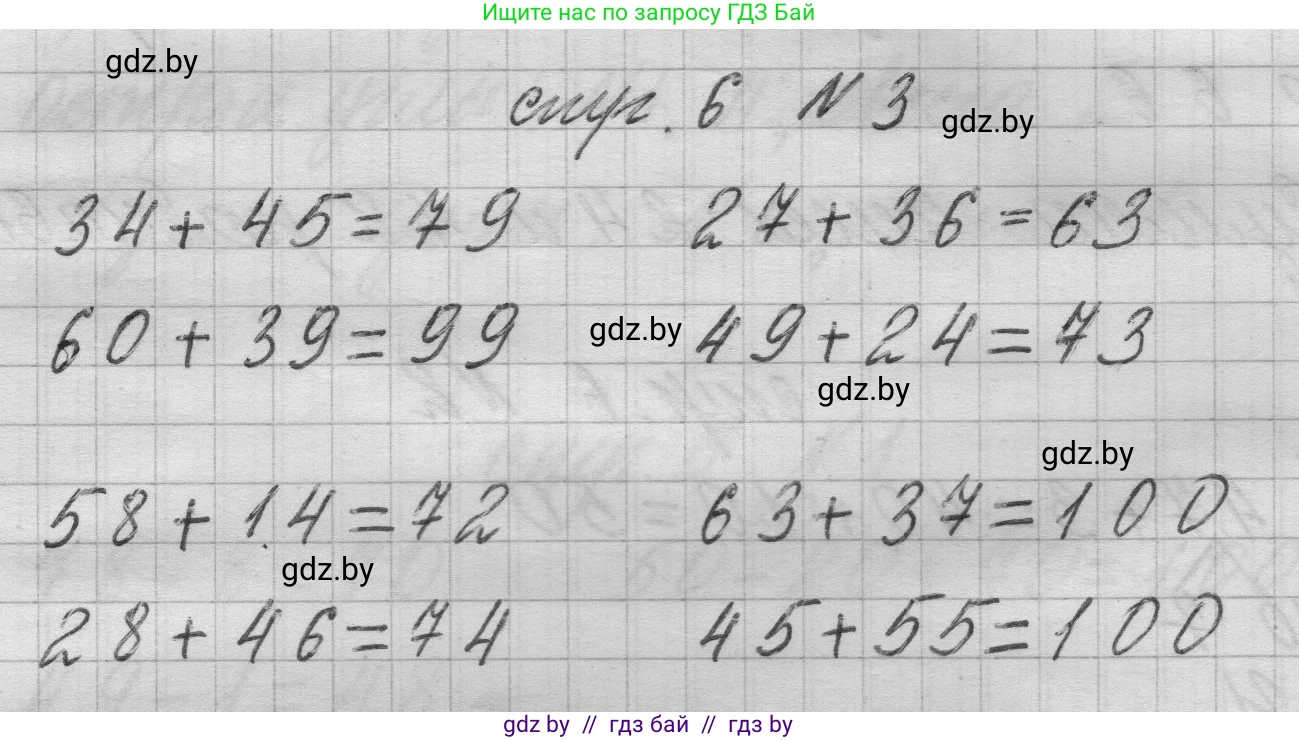 Ищите нас по запросу ГДЗ Бай
gdz.by
стр. 6 № 3
gdz.by
34 + 45 = 79 27 + 36 = 63
60 + 39 = 99 gdz.by 49 + 24 = 73
gdz.by
gdz.by
58 + 14 = 72 63 + 37 = 100
gdz.by
28 + 46 = 74 45 + 55 = 100
gdz by // гдз бай // гдз by